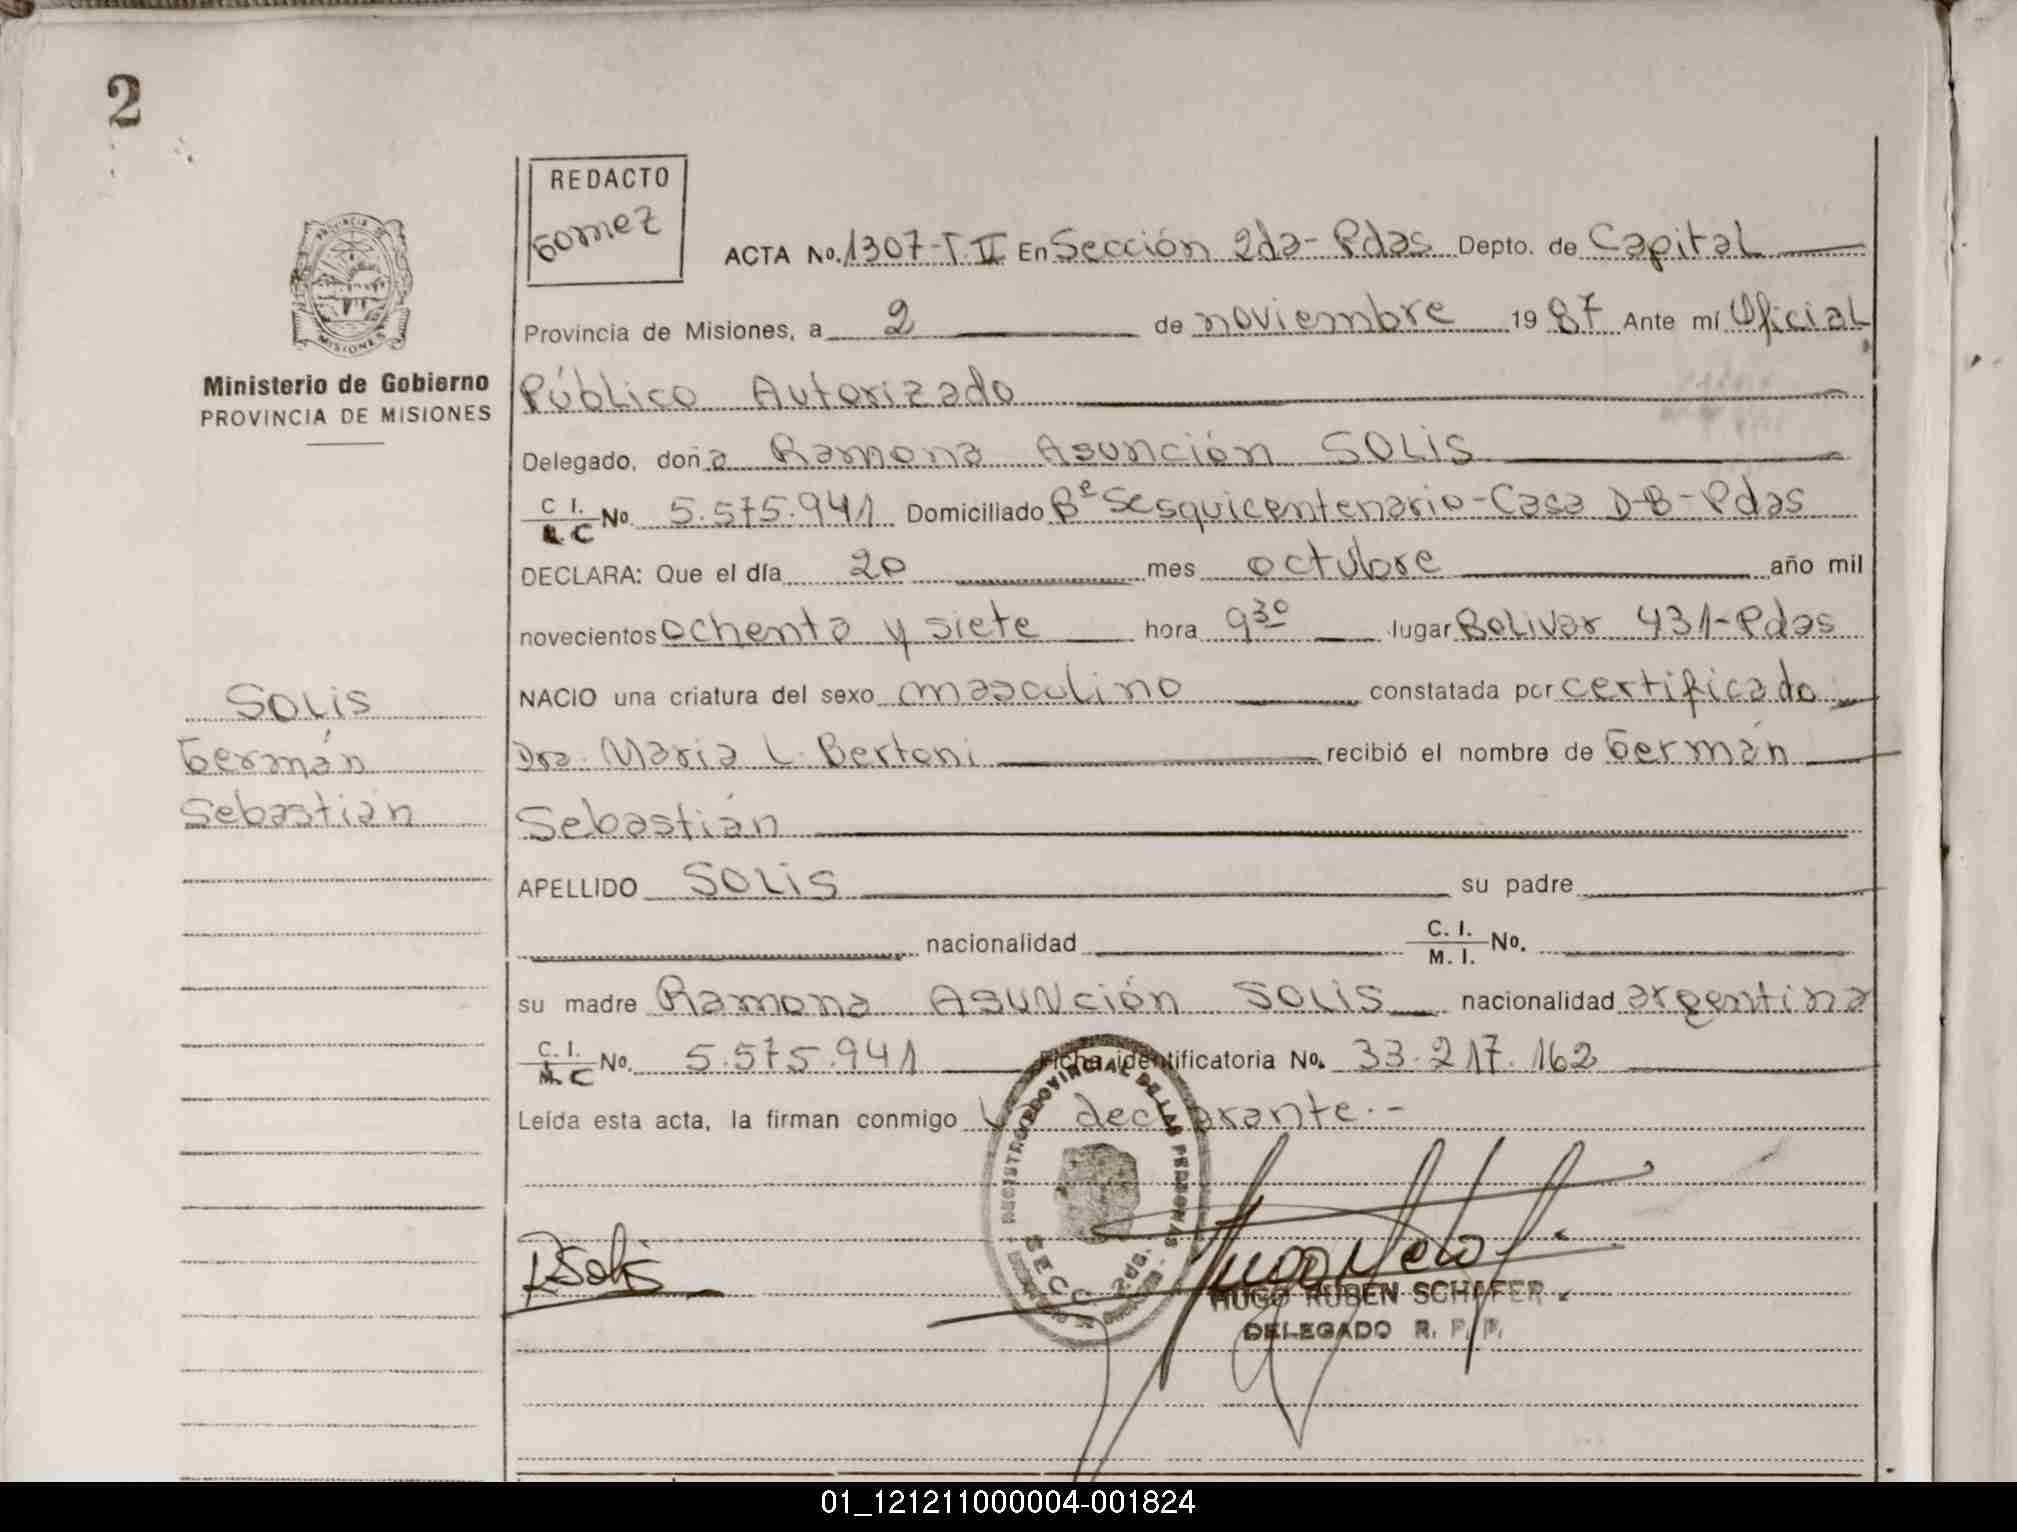 2
REDACTO
Gomez
PROVINCIA DE
MISIONES
Ministerio de Gobierno
PROVINCIA DE MISIONES
ACTA No. 1307-T.II En Sección 2da- Pdas Depto. de Capital
Provincia de Misiones, a 2 de noviembre 1987 Ante mí Oficial
Público Autorizado
Delegado, doña Ramona Asunción SOLIS
C I. L C No. 5.575.941 Domiciliado Bº Sesquicentenario-Casa D-B-Pdas
DECLARA: Que el día 20 mes octubre año mil
novecientos ochenta y siete hora 9 30 lugar Bolivar 431-Pdas
NACIO una criatura del sexo masculino constatada por certificado
Dra. Maria L. Bertoni recibió el nombre de Germán
Sebastián
APELLIDO SOLIS su padre
nacionalidad C. I. M. I. No.
su madre Ramona Asunción SOLIS nacionalidad argentina
C. I. No. 5.575.941 Ficha identificatoria No. 33.217.162
Leída esta acta, la firman conmigo la declarante.-
SOLIS
Germán
Sebastián
REGISTRO PROVINCIAL DE LAS PERSONAS
SECC. 2da.
RSolis
HUGO RUBEN SCHAFER
DELEGADO R. P. P.
01_121211000004-001824